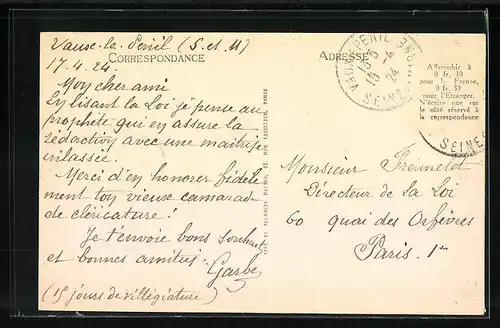 Vaux-le-Penil (S. et M)
17.4.24.
CORRESPONDANCE
Mon cher ami
En lisant la Loi je pense au
prophète qui en assure la
rédaction avec une maitrise
inlassée.
Merci d'en honorer fidèle-
ment ton vieux camarade
de cléricature !
Je t'envoie bons souhaits
et bonnes amitiés.
Garbe
(15 jours de villégiature)
ADRESSE
VAUX-LE-PENIL
24
SEINE-
Affranchir à
0 fr. 10
pour la France,
0 fr. 30
pour l'Etranger.
N'écrire que sur
le côté réservé à
la correspondance
SEINE
Monsieur
Directeur de la Loi
60 quai des Orfèvres
Paris. 1er